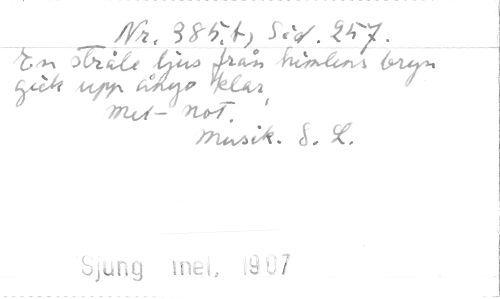 Nr. 385.b, Sid. 257.
En stråle ljus från himlens bryn
gick upp ånyo klar
Mel- not.
Musik. S. L.
Sjung mel, 1907